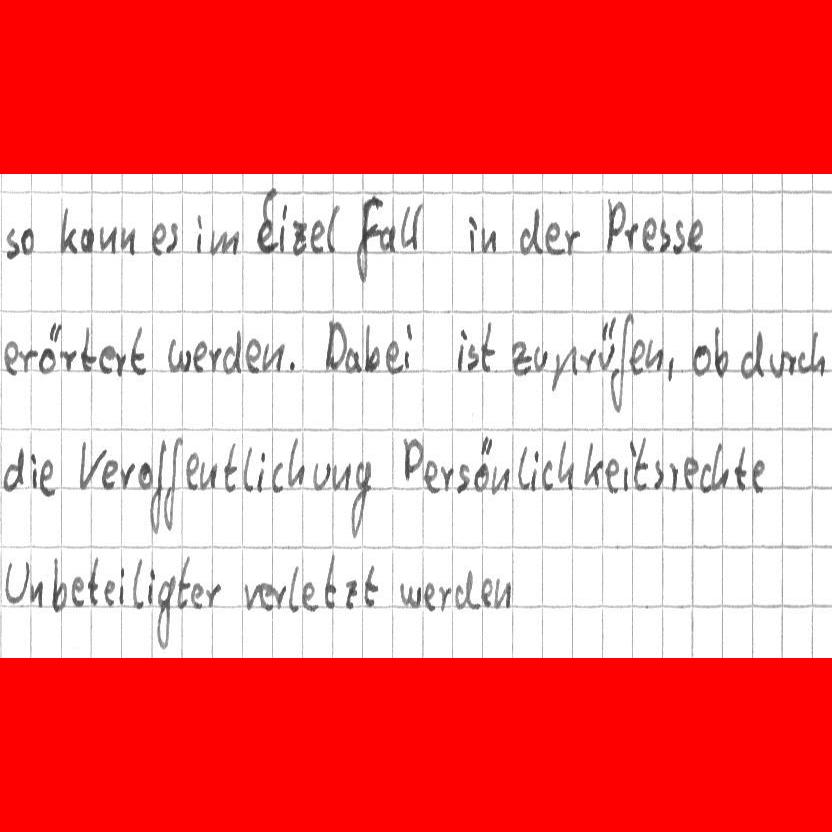 so kann es im Eizel Fall in der Presse
erörtert werden. Dabei ist zuprüfen, ob durch
die Veroffentlichung Persönlichkeitsrechte
Unbeteiligter verletzt werden